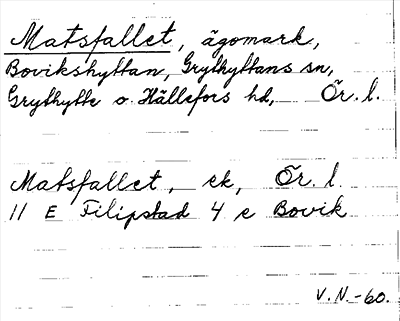 Matsfallet, ägomark,
Bovikshyttan, Grythyttans sn,
Grythytte o. Hällefors hd, Ör. l.
Matsfallet, ek, Ör. l.
11 E Filipstad 4 e Bovik
V. N. -60.